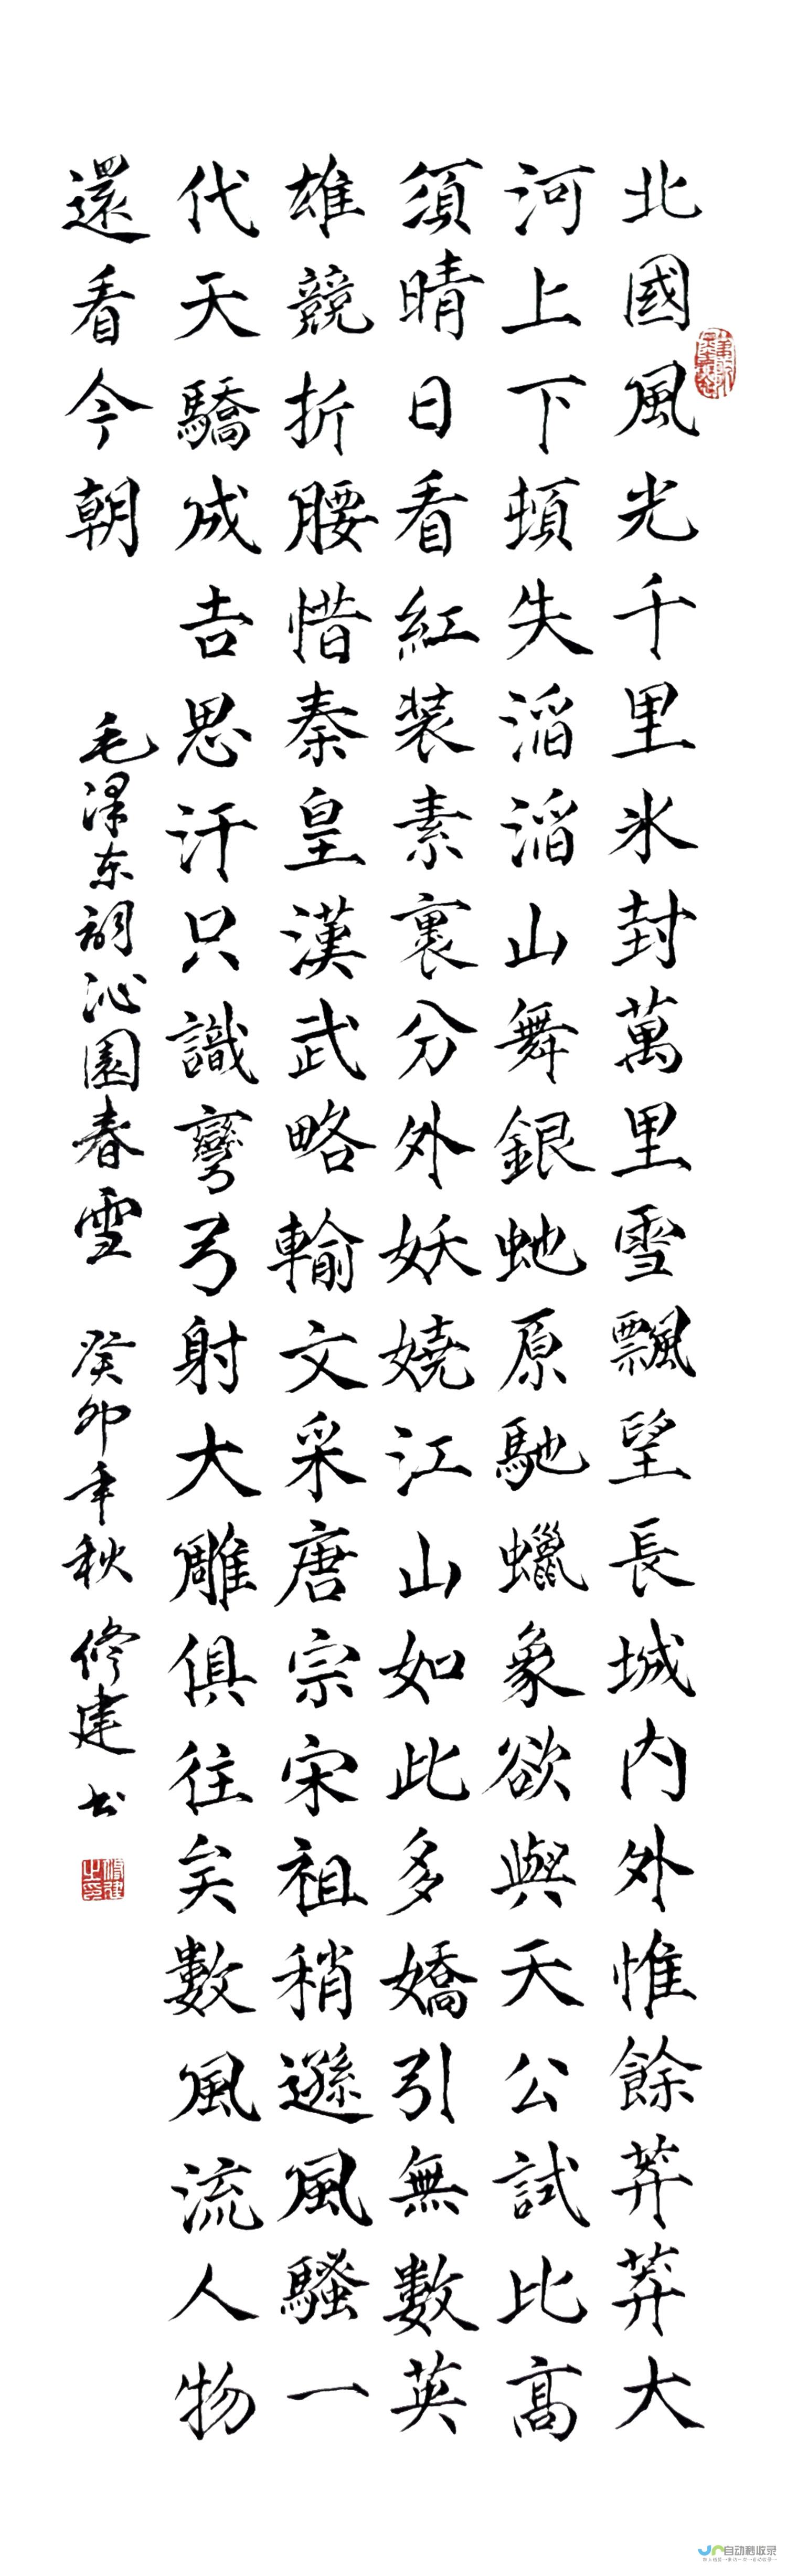 北國風光千里氷封萬里雪飄望長城內外惟餘莽莽大
河上下頓失滔滔山舞銀虵原馳蠟象欲與天公試比髙
須晴日看紅装素裹分外妖嬈江山如此多嬌引無數英
雄競折腰惜秦皇漢武略輸文采唐宗宋祖稍遜風騷一
代天驕成吉思汗只識彎弓射大雕俱往矣數風流人物
還看今朝
毛泽东詞沁園春雪 癸卯年秋 修建书
修建之印
自动秒收录